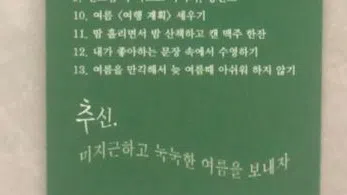 10. 여름 <여행 계획> 세우기
11. 땀 흘리면서 밤 산책하고 캔 맥주 한잔
12. 내가 좋아하는 문장 속에서 수영하기
13. 여름을 만끽해서 늦 여름때 아쉬워 하지 않기
추신.
미지근하고 눅눅한 여름을 보내자